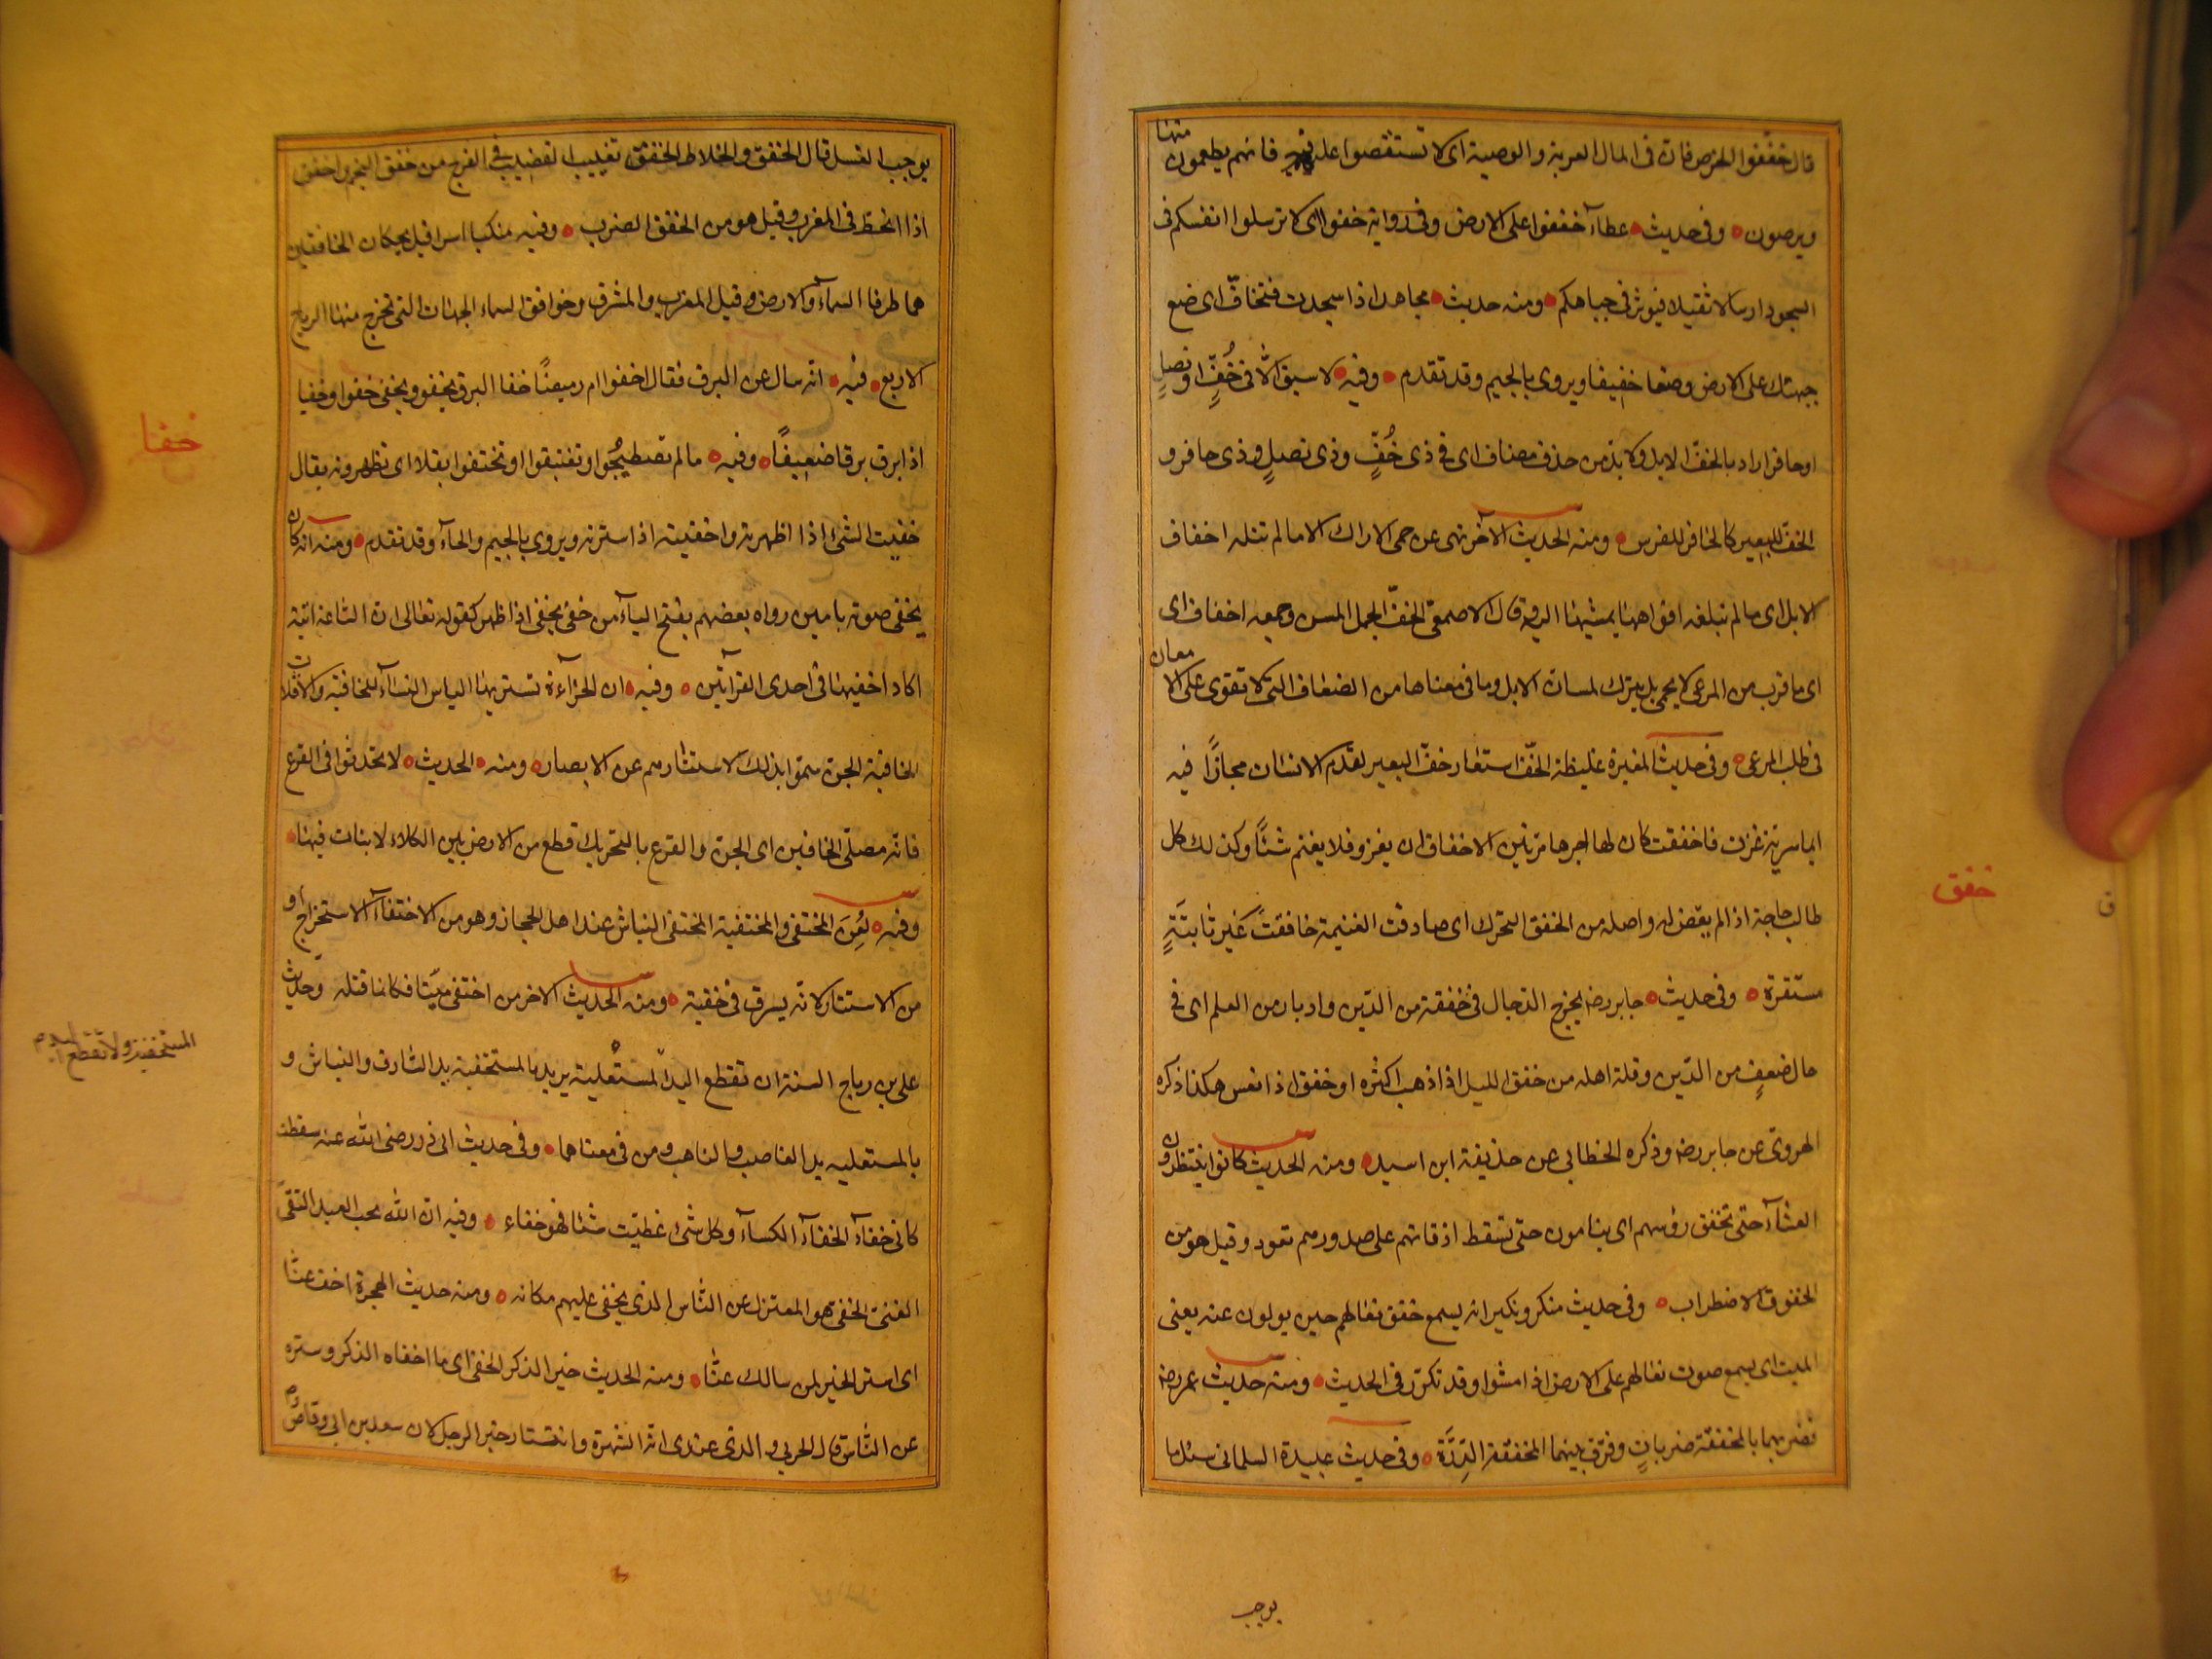 قال خففوا الخرص فان فى المال العرية والوصية اى لا تستقصوا عليهم فيه فانهم يطعمون منها
ويوصون وفى حديث عطاء خففوا على الارض وفى رواية خفوا اى لا ترسلوا انفسكم فى
السجود ارسالا ثقيلا فيوثر فى جباهكم ومنه حديث مجاهد اذا سجدت فتخافّ اى ضع
جبهتك على الارض وضعا خفيفا ويروى بالجيم وقد تقدم وفيه لا سبق الّا فى خُفٍّ او نصلٍ
او حافر اراد بالخف الابل ولا بد من حذف مضاف اى فى ذى خُفٍّ وذى نصلٍ وذى حافر و
الخف للبعير كالحافر للفرس ومنه الحديث الآخر نهى عن حمى الاراك الا ما لم تنله اخفاف
الابل اى ما لم تبلغه افواهها بمشيها اليه قال الاصمعى الخفّ الجمل المسن وجمعه اخفاف اى
اى ما قرب من المرعى لا يحمى بل يترك لمسان الابل وما فى معناها من الضعاف التى لا تقوى على الامعان
فى طلب المرعى وفى حديث المغيرة غليظة الخفّ استعار خفّ البعير لقدم الانسان مجازًا فيه
ايما سرية غزت فاخفقت كان لها اجرها مرتين الاخفاق ان يغزو فلا يغنم شئًا وكذلك كل
طالب حاجة اذا لم يقض له واصله من الخفق التحرك اى صادفت الغنيمة خافقةً غير ثابتةٍ
مستقرة وفى حديث جابر رضه يخرج الدجال فى خفقة من الدّين وادبار من العلم اى فى
حال ضعفٍ من الدّين وقلة اهله من خفق الليل اذا ذهب اكثره او خفق اذا نعس هكذا ذكره
الهروى عن جابر رضه وذكره الخطابى عن حذيفة ابن اسيد ومنه الحديث كانوا ينتظرون
العشآء حتى تخفق رؤسهم اى ينامون حتى تسقط اذقانهم على صدورهم قعود وقيل هو من
الخفوق الاضطراب وفى حديث منكر ونكير انه ليسمع خفق نعالهم حين يولون عنه يعنى
الميت اى يسمع صوت نعالهم على الارض اذ امشوا وقد تكرّر فى الحديث ومنه حديث عمر رضه
فضربهما بالمخفقة ضرباتٍ وفرّق بينهما المخفقة الدِّرَّة وفى حديث عبيدة السلمانى سئل ما
خفق
يوجب
يوجب الغسل قال الخفق والخلاط الخفق تغييب القضيب فى الفرج من خفق النجم واخفق
اذا انحط فى المغرب وقيل هو من الخفق الضرب وفيه منكبا اسرافيل يحكان الخافقين
هما طرفا السمآء والارض وقيل المغرب والمشرق وخوافق السماء الجهات التى تخرج منها الرياح
الاربع فيه انه سال عن البرق فقال اخفوا ام وميضًا خفا البرق يخفو ويخفى خفوا وخفيا
اذا برق برقا ضعيفًا وفيه ما لم تصطبحوا او تغتبقوا او تختفوا بقلا اى تظهرونه يقال
خفيت الشئ اذا اظهرته واخفيته اذا سترته ويروى بالجيم والحآء وقد تقدم ومنه انه كان
يخفى صوته بامين رواه بعضهم بفتح اليآء من خفى يخفى اذا ظهر كقوله تعالى ان الساعة اتية
اكاد اخفيها فى احدى القرآتين وفيه ان الحزآءة تشتريها اكياس النسآء للخافية والاقلات
الخافية الجن سموا بذلك لاستتارهم عن الابصار ومنه الحديث لا تحدثوا فى القرع
فانه مصلّى الخافين اى الجن والقرع بالتحريك قطع من الارض بين الكلاء لا نبات فيها
وفيه لعن المختفى والمختفية المختفى النباش عند اهل الحجاز وهو من الاختفآء الاستخراج او
من الاستتار لانه يسرق فى خفية ومنه الحديث الاخر من اختفى ميّتا فكانما قتله وحديث
على بن رباح السنة ان تقطع اليد المستعلية يريد بالمستخفية يد السارق والنباش و
بالمستعلية يد الغاصب والناهب ومن فى معناهما وفى حديث ابى ذر رضى الله عنه سقطت
كانى خفآء الخفآء الكسآء وكل شئ غطيت شئا فهو خفاء وفيه ان الله يحب العبد التقى
الغنى الخفى هو المعتزل عن الناس الذى يخفى عليهم مكانه ومنه حديث الهجرة اخف عنّا
اى استر الخبر لمن سالك عنّا ومنه الحديث خير الذكر الخفى اى ما اخفاه الذكر وستره
عن الناس قال الحربى والذى عندى انه الشهرة وانتشار خبر الرجل لان سعد بن ابى وقاص
خفا
المستخفية ولا تقطع اليد